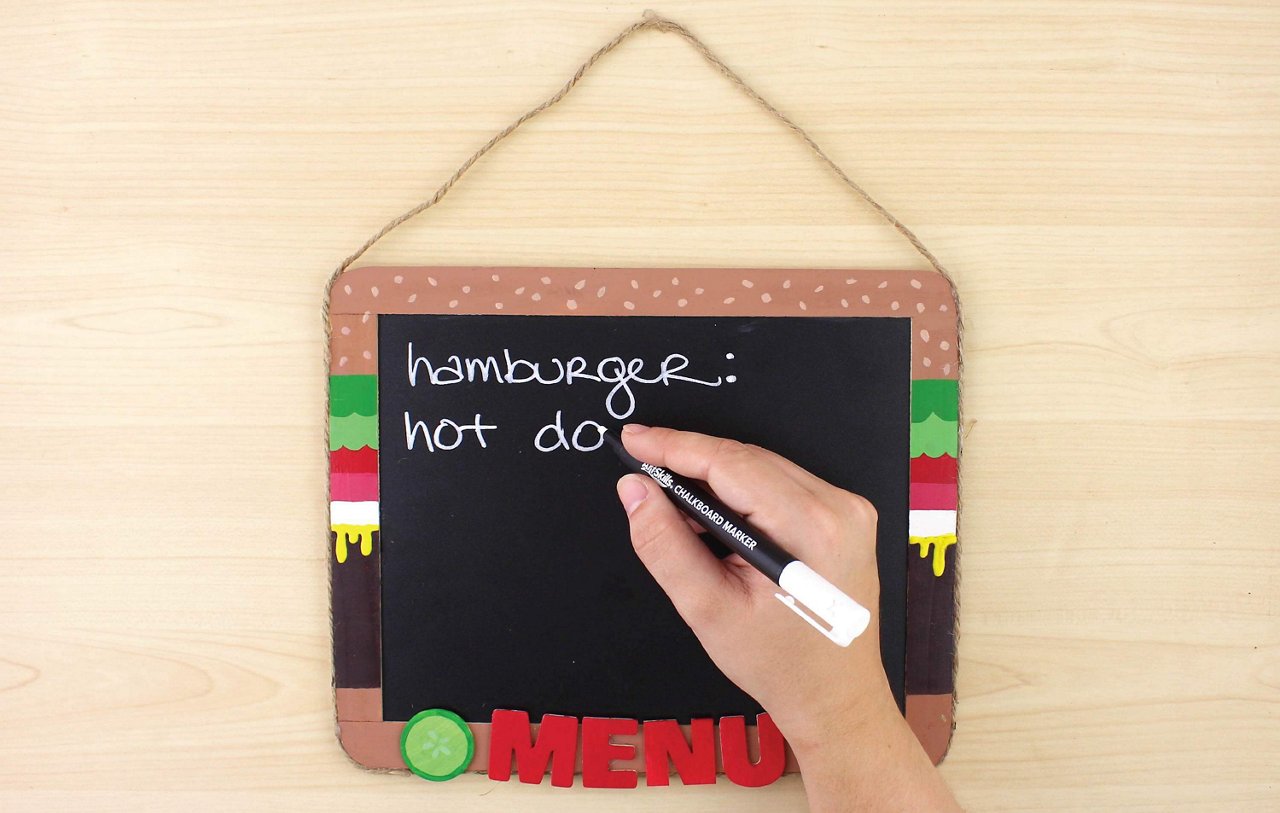 hamburger:
hot do
CHALKBOARD MARKER
MENU